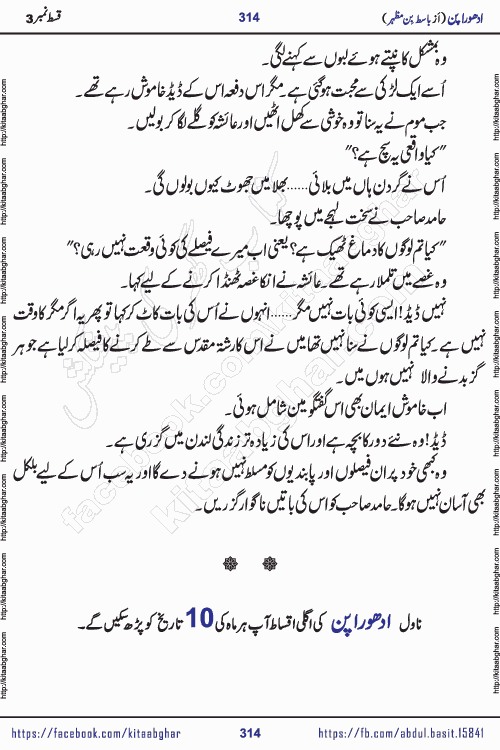 ادھورا پن (از باسط بن مظہر) 314 قسط نمبر 3
وہ بمشکل کانپتے ہوئے لبوں سے کہنے لگی۔
اُسے ایک لڑکی سے محبت ہو گئی ہے۔ مگر اس دفعہ اس کے ڈیڈ خاموش رہے تھے۔
جب موم نے یہ سنا تو وہ خوشی سے کھل اٹھیں اور عائشہ کو گلے لگا کر بولیں۔
”کیا واقعی یہ سچ ہے؟“
اُس نے گردن ہاں میں ہلائی...... بھلا میں جھوٹ کیوں بولوں گی۔
حامد صاحب نے سخت لہجے میں پوچھا۔
”کیا تم لوگوں کا دماغ ٹھیک ہے؟ یعنی اب میرے فیصلے کی کوئی وقعت نہیں رہی؟“
وہ غصے میں تلملا رہے تھے۔ عائشہ نے انکا غصہ ٹھنڈا کرنے کے لیے کہا۔
نہیں ڈیڈ! ایسی کوئی بات نہیں مگر...... انہوں نے اُس کی بات کاٹ کر کہا تو پھر یہ اگر مگر کا وقت
نہیں ہے۔ کیا تم لوگوں نے سنا نہیں تھا میں نے اس کا رشتہ مقدس سے طے کرنے کا فیصلہ کر لیا ہے جو ہر
گز بدلنے والا نہیں ہوں میں۔
اب خاموش ایمان بھی اس گفتگو مین شامل ہوئی۔
ڈیڈ! وہ نئے دور کا بچہ ہے اور اس کی زیادہ تر زندگی لندن میں گزری ہے۔
وہ کبھی خود پر ان فیصلوں اور پابندیوں کو مسلط نہیں ہونے دے گا اور یہ سب اُس کے لیے بلکل
بھی آسان نہیں ہوگا۔ حامد صاحب کو اس کی باتیں ناگوار گزریں۔
ناول ادھورا پن کی اگلی اقساط آپ ہر ماہ کی 10 تاریخ کو پڑھ سکیں گے۔
https://facebook.com/kitaabghar 314 https://fb.com/abdul.basit.15841
http://kitaabghar.com
facebook.com/kitaabghar
kitaabghar.com